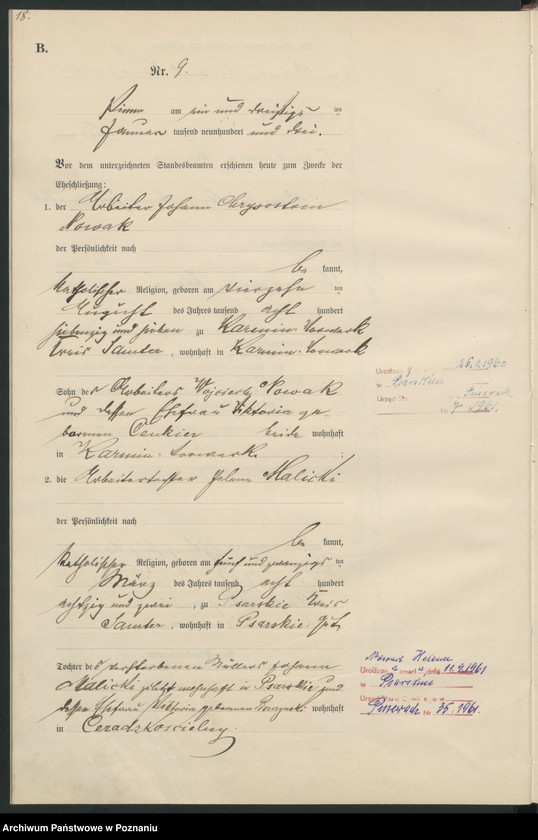 18.
B.
Nr. 9.
am ein und dreißigs ten
Januar tausend neunhundert und drei.
Vor dem unterzeichneten Standesbeamten erschienen heute zum Zwecke der
Eheschließung:
1. der Arbeiter Johann Chrysostom
Nowak
der Persönlichkeit nach
be kannt,
katholischer Religion, geboren am vierzehn ten
August des Jahres tausend acht hundert
siebenzig und sieben zu Karmin-Vorwerk
Kreis Samter, wohnhaft in Karmin-Vorwerk
Sohn des Arbeiters Wojciech Nowak
und dessen Ehefrau Viktoria ge-
borenen beide wohnhaft
in Karmin-Vorwerk;
2. die Arbeitertochter Helena Malicki
der Persönlichkeit nach
be kannt,
katholischer Religion, geboren am fünf und zwanzigs ten
März des Jahres tausend acht hundert
achtzig und zwei, zu Psarskie Kreis
Samter, wohnhaft in Psarskie Gut
Tochter des verstorbenen Müllers Johann
Malicki zuletzt wohnhaft in Psarskie und
dessen Ehefrau Viktoria geborenen wohnhaft
in Ceradzkoscielny.
25.1.1960
w
Urząd
Nr 7 1961.
Nowak Helena
dnia 11.2.1961
w
Urząd
Nr 35, 1961.
Archiwum Państwowe w Poznaniu